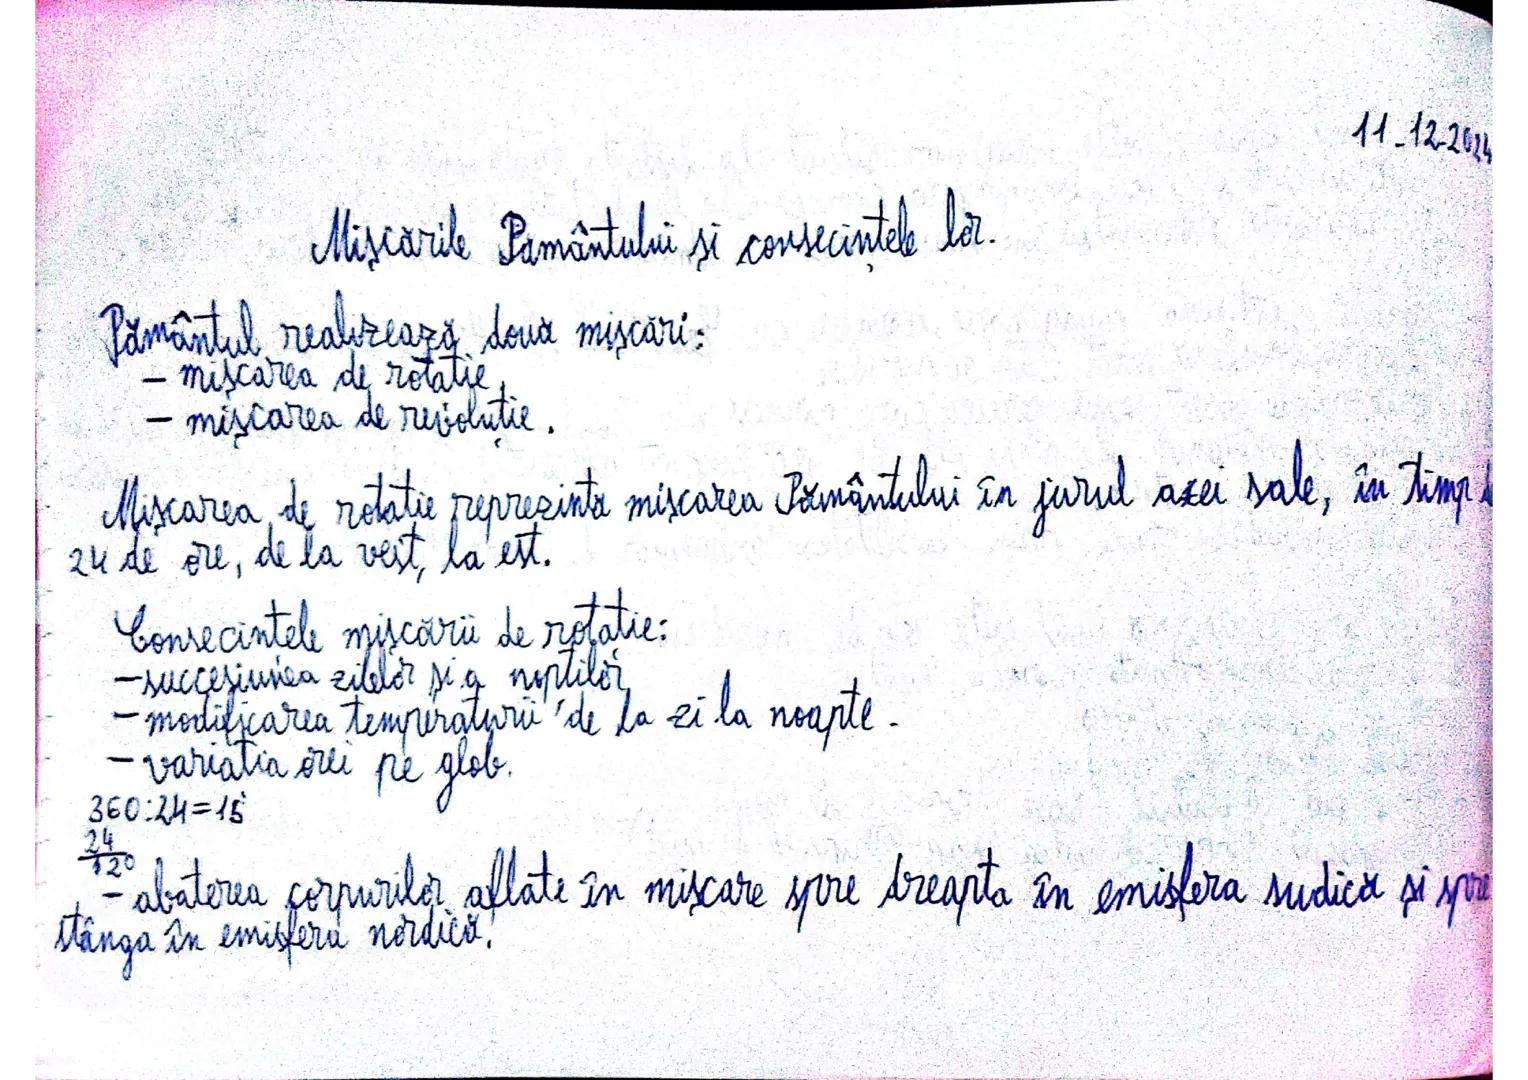 11-12-2024
Mișcările Pamântului și consecințele lor.
Pământul realizează două mișcări:
- mișcarea de rotație,
- mișcarea de revoluție.
Mișcarea de rotație reprezintă mișcarea Pământului în jurul axei sale, în timp
24 de ore, de la vest, la est.
Consecintele mișcării de rotatie:
-succesiunea zilelor și a nopților,
- modificarea temperaturii de la zi la noapte.
- variatia orei pe glob.
360:24=15
24
120
- abaterea corpurilor aflate în mișcare spre dreapta în emisfera sudică și spre
stânga în emisfera nordică.